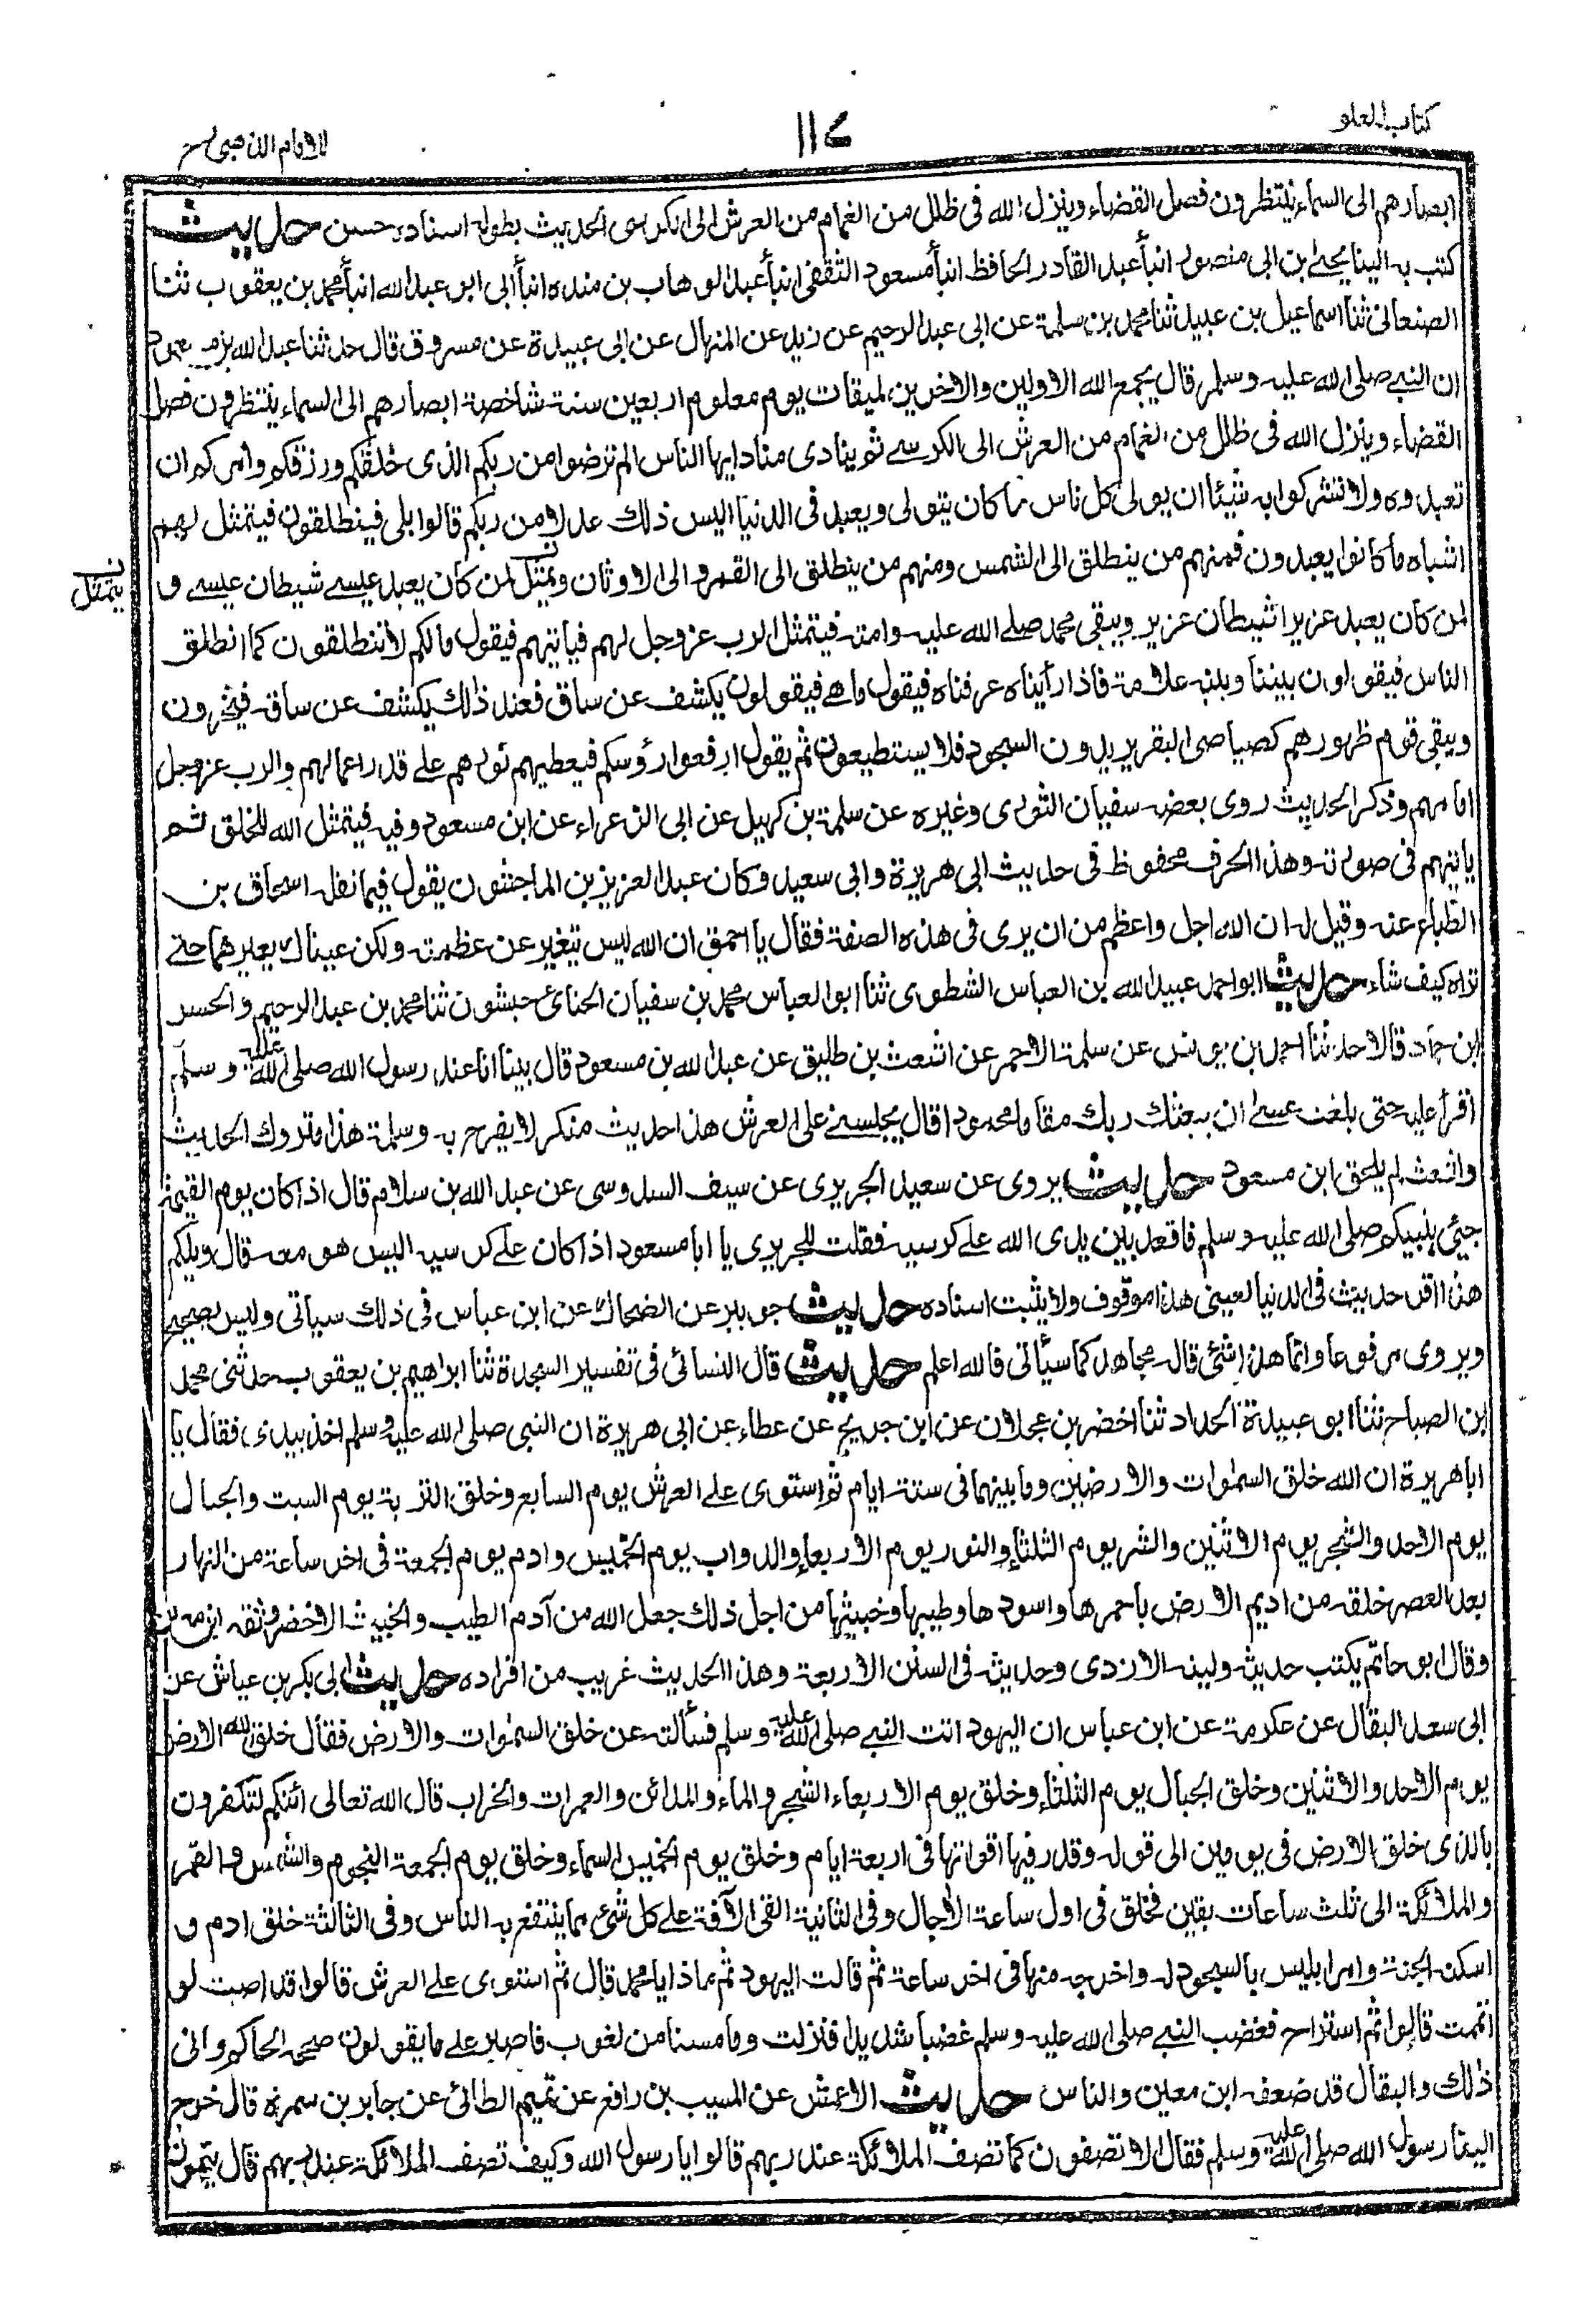 كتاب العلو
١١٧
للامام الذهبي
ابصارهم الى السماء ينتظرون فصل القضاء وينزل الله فى ظلل من الغمام من العرش الى الكرسى الحديث بطوله اسناده حسن حديث
كتب به الينا يحيى بن ابى منصور انبأ عبد القادر الحافظ انبأ مسعود الثقفى انبأ عبد الوهاب بن منده انبأ ابى ابو عبد الله انبأ محمد بن يعقوب ثنا
الصنعانى ثنا اسماعيل بن عبيد ثنا محمد بن سلمة عن ابى عبد الرحيم عن زيد عن المنهال عن ابى عبيدة عن مسروق قال حدثنا عبد الله بن مسعود
ان النبى صلى الله عليه وسلم قال يجمع الله الاولين والاخرين لميقات يوم معلوم اربعين سنة شاخصة ابصارهم الى السماء ينتظرون فصل
القضاء وينزل الله فى ظلل من الغمام من العرش الى الكرسى ثم ينادى مناد ايها الناس الم ترضوا من ربكم الذى خلقكم ورزقكم وأمركم ان
تعبدوه ولا تشركوا به شيئا ان يولى كل ناس ما كان يتولى ويعبد فى الدنيا اليس ذلك عدلا من ربكم قالوا بلى فينطلقون فيتمثل لهم
اشباه ما كانوا يعبدون فمنهم من ينطلق الى الشمس ومنهم من ينطلق الى القمر والى الاوثان ويمثل لمن كان يعبد عيسى شيطان عيسى و
يتمثل
لمن كان يعبد عزيرا شيطان عزير ويبقى محمد صلى الله عليه وامته فيتمثل الرب عز وجل لهم فيأتيهم فيقول مالكم لا تنطلقون كما انطلق
الناس فيقولون بيننا وبينه علامة فاذا رأيناه عرفناه فيقول ما هى فيقولون يكشف عن ساق فعند ذلك يكشف عن ساقه فيخرون
ويبقى قوم ظهورهم كصياصى البقر يريدون السجود فلا يستطيعون ثم يقول ارفعوا رؤسكم فيعطيهم نورهم على قدر اعمالهم والرب عز وجل
امامهم وذكر الحديث روى بعضه سفيان الثورى وغيره عن سلمة بن كهيل عن ابى الزعراء عن ابن مسعود وفيه فيتمثل الله للخلق ثم
يأتيهم فى صورته وهذا الحرف محفوظ فى حديث ابى هريرة وابى سعيد وكان عبد العزيز بن الماجشون يقول فيما نقله اسحاق بن
الطباع عنه وقيل له ان الله اجل واعظم من ان يرى فى هذه الصفة فقال يا احمق ان الله ليس تتغير عن عظمته ولكن عيناك يغيرهما حتى
تراه كيف شاء حديث ابو احمد عبيد الله بن العباس الشطوى ثنا ابو العباس محمد بن سفيان الحنائى حبشون ثنا محمد بن عبد الرحيم والحسن
ابن حماد قالا حدثنا احمد بن يونس عن سلمة الاحمر عن اشعث بن طليق عن عبد الله بن مسعود قال بينا انا عند رسول الله صلى الله عليه وسلم
أقرأ عليه حتى بلغت عسى ان يبعثك ربك مقاما محمودا قال يجلسنى على العرش هذا حديث منكر لا يفرح به وسلمة هذا متروك الحديث
واشعث لم يلحق ابن مسعود حديث يروى عن سعيد الجريرى عن سيف السدوسى عن عبد الله بن سلام قال اذا كان يوم القيمة
جيئ بنبيكم صلى الله عليه وسلم فاقعد بين يدى الله على كرسيه فقلت للجريرى يا ابا مسعود اذا كان على كرسيه اليس هو معه قال ويلكم
هذا اقر حديث فى الدنيا لعينى هذا موقوف ولا يثبت اسناده حديث جويبر عن الضحاك عن ابن عباس فى ذلك سيأتى وليس بصحيح
ويروى مرفوعا وانما هذا شئ قاله مجاهد كما سيأتى فالله اعلم حديث قال النسائى فى تفسير السجدة ثنا ابراهيم بن يعقوب حدثنى محمد
ابن الصباح ثنا ابو عبيدة الحداد ثنا اخضر بن عجلان عن ابن جريج عن عطاء عن ابى هريرة ان النبى صلى الله عليه وسلم اخذ بيدى فقال يا
ابا هريرة ان الله خلق السموات والارضين وما بينهما فى ستة ايام ثم استوى على العرش يوم السابع وخلق التربة يوم السبت والجبال
يوم الاحد والشجر يوم الاثنين والشر يوم الثلثاء والنور يوم الاربعاء والدواب يوم الخميس وادم يوم الجمعة فى اخر ساعة من النهار
بعد العصر خلقه من اديم الارض باحمرها واسودها وطيبها وخبيثها من اجل ذلك جعل الله من آدم الطيب والخبيث الاخضر وثقه ابن معين
وقال ابو حاتم يكتب حديثه ولينه الازدى وحديثه فى السنن الاربعة وهذا الحديث غريب من افراده حديث ابى بكر بن عياش عن
ابى سعد البقال عن عكرمة عن ابن عباس ان اليهود اتت النبى صلى الله عليه وسلم فسألته عن خلق السموات والارض فقال خلق الله الارض
يوم الاحد والاثنين وخلق الجبال يوم الثلثاء وخلق يوم الاربعاء الشجر والماء والمدائن والعمرات والخراب قال الله تعالى ائنكم لتكفرون
بالذى خلق الارض فى يومين الى قوله وقدر فيها اقواتها فى اربعة ايام وخلق يوم الخميس السماء وخلق يوم الجمعة النجوم والشمس والقمر
والملائكة الى ثلث ساعات بقين فخلق فى اول ساعة الآجال وفى الثانية القى الآفة على كل شئ مما ينتفع به الناس وفى الثالثة خلق ادم و
اسكنه الجنة وامر ابليس بالسجود له واخرجه منها فى اخر ساعة ثم قالت اليهود ثم ماذا يا محمد قال ثم استوى على العرش قالوا قد اصبت لو
اتممت قالوا ثم استراح فغضب النبى صلى الله عليه وسلم غضبا شديدا فنزلت وما مسنا من لغوب فاصبر على ما يقولون صححه الحاكم وانى
ذلك والبقال قد ضعفه ابن معين والناس حديث الاعمش عن المسيب بن رافع عن تميم الطائى عن جابر بن سمرة قال خرج
الينا رسول الله صلى الله عليه وسلم فقال الا تصفون كما تصف الملائكة عند ربهم قالوا يا رسول الله وكيف تصف الملائكة عند ربهم قال يتمون